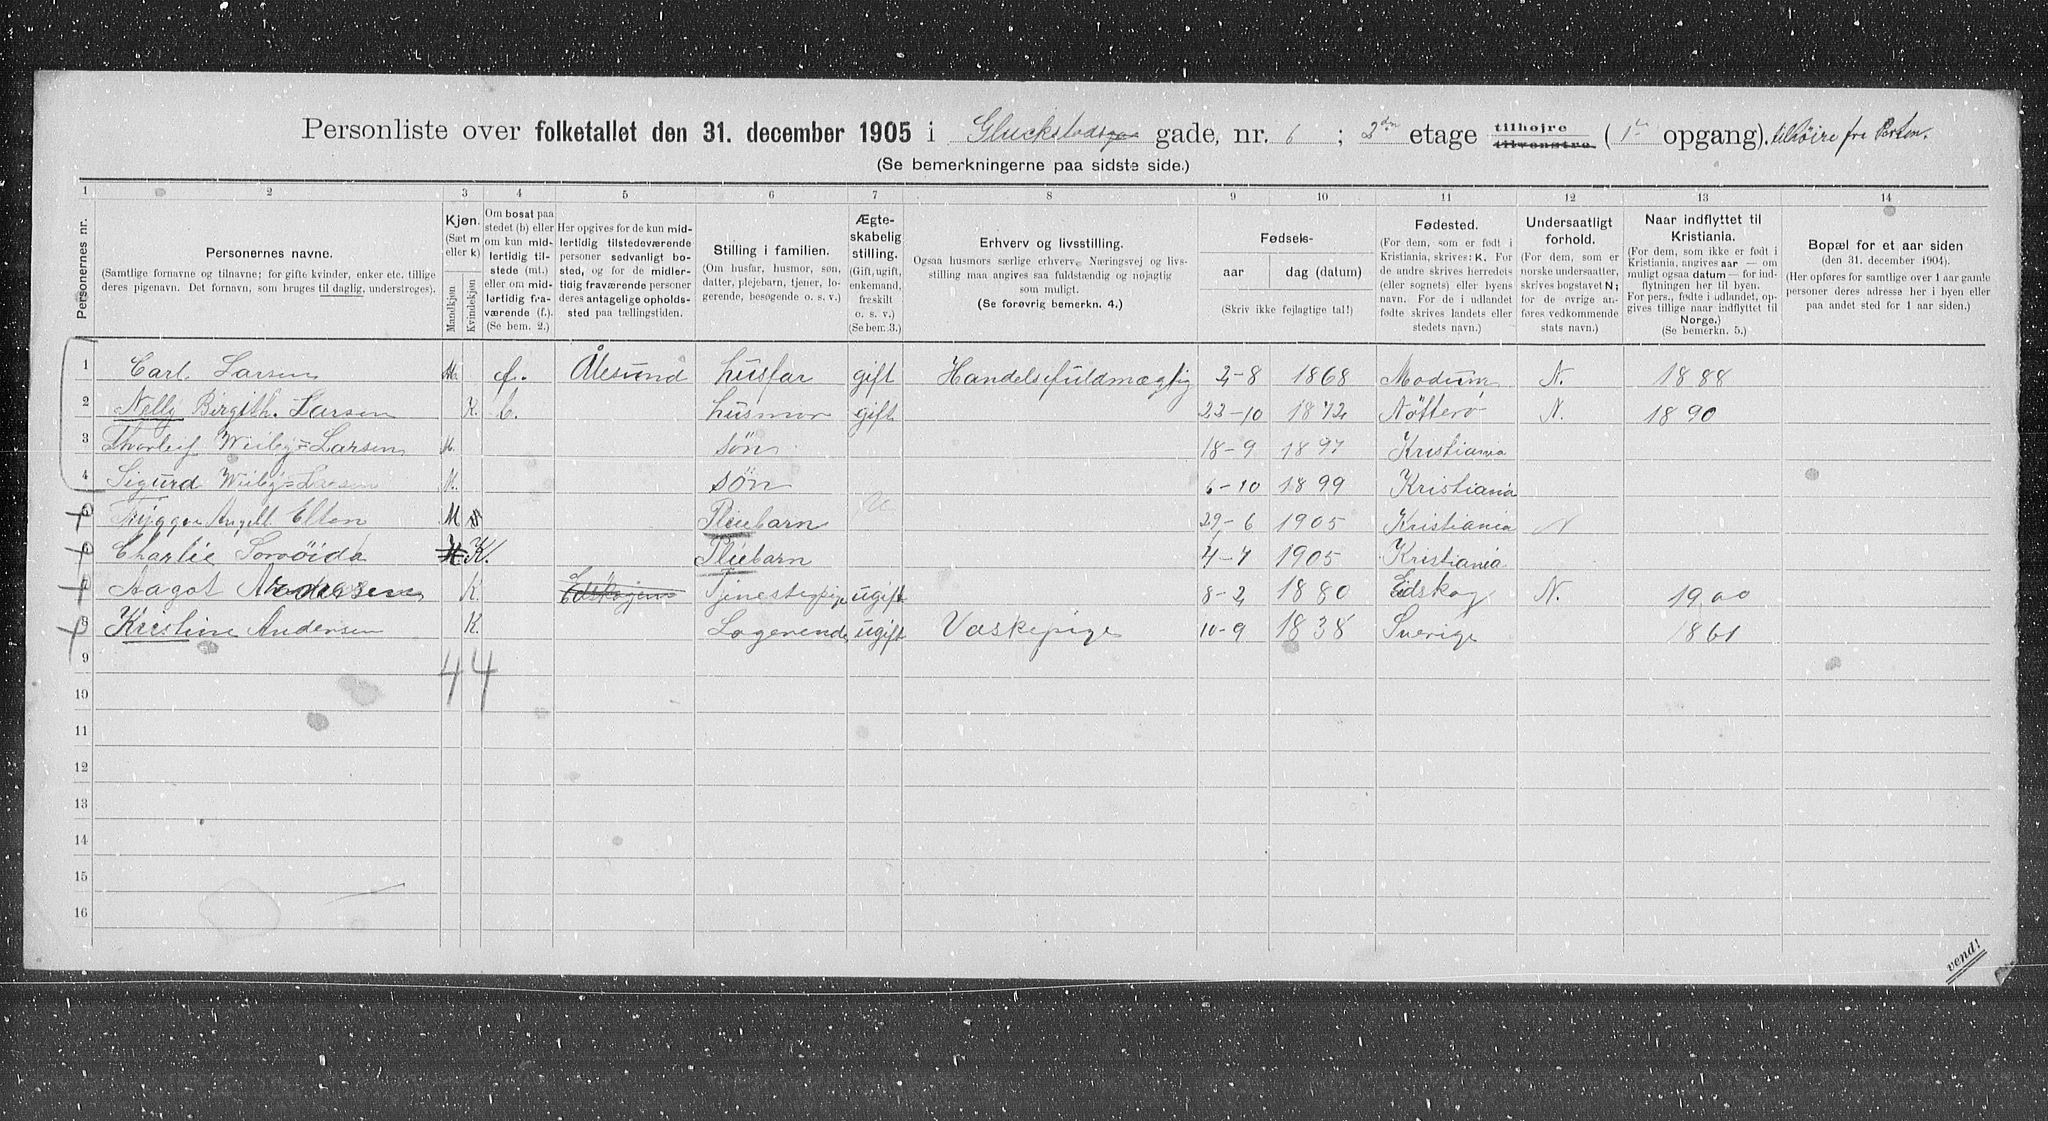 Personliste over folketallet den 31. december 1905 i Gluckstadsga gade, nr. 6 ; 2den etage tilhøjre tilvenstre ( 1ste opgang). tilhøire fra Porten.
(Se bemerkningerne paa sidste side.)
1 2 3 4 5 6 7 8 9 10 11 12 13 14
Personernes nr.
Personernes navne.
(Samtlige fornavne og tilnavne; for gifte kvinder, enker etc. tillige deres pigenavn. Det fornavn, som bruges til daglig, understreges).
Kjøn.
(Sæt m eller k)
Mandkjøn
Kvindekjøn
Om bosat paa stedet (b) eller om kun midlertidig tilstede (mt.) eller om midlertidig fraværende (f.). (Se bem. 2.)
Her opgives for de kun midlertidig tilstedeværende personer sedvanligt bosted, og for de midlertidig fraværende personer deres antagelige opholdssted paa tællingstiden.
Stilling i familien.
(Om husfar, husmor, søn, datter, plejebarn, tjener, logerende, besøgende o. s. v.)
Ægteskabelig stilling.
(Gift, ugift, enkemand, fraskilt o. s. v.) (Se bem. 3.)
Erhverv og livsstilling.
Ogsaa husmors særlige erhverv. Næringsvej og livsstilling maa angives saa fuldstændig og nøjagtig som muligt.
(Se forøvrig bemerkn. 4.)
Fødsels-
aar
dag (datum)
(Skriv ikke fejlagtige tal!)
Fødested.
(For dem, som er født i Kristiania, skrives: K. For de andre skrives herredets (eller sognets) eller byens navn. For de i udlandet fødte skrives landets eller stedets navn.)
Undersaatligt forhold.
(For dem, som er norske undersaatter, skrives bogstavet N; for de øvrige anføres vedkommende stats navn.)
Naar indflyttet til Kristiania.
(For dem, som ikke er født i Kristiania, angives aar — om muligt ogsaa datum — for indflytningen her til byen. For pers., fødte i udlandet, opgives tillige naar indflyttet til Norge.)
(Se bemerkn. 5.)
Bopæl for et aar siden
(den 31. december 1904).
(Her opføres for samtlige over 1 aar gamle personer deres adresse her i byen eller paa andet sted for 1 aar siden.)
1 Carl Larsen M. f. Ålesund husfar gift Handelsfuldmægtig 2-8 1868 Modum N. 1888
2 Nelly Birgith. Larsen K. b. husmor gift 22-10 1872 Nötterö N. 1890
3 Thorleif Wiiby=Larsen M. søn 18-9 1897 Kristiania
4 Sigurd Wiiby=Larsen M. søn 6-10 1899 Kristiania
5 Trygve Angell Elton M Pleiebarn 29-6 1905 Kristiania N
6 Charlie M. K. Pleiebarn 4-7 1905 Kristiania
7 Aagot K. Edskogen Tjenestepige ugift 8-2 1880 Eidskog N. 1900
8 Kristine Andersen K. Logerende ugift Vaskepige 10-9 1838 Sverige 1861
9 4 4
10
11
12
13
14
15
16
vend!